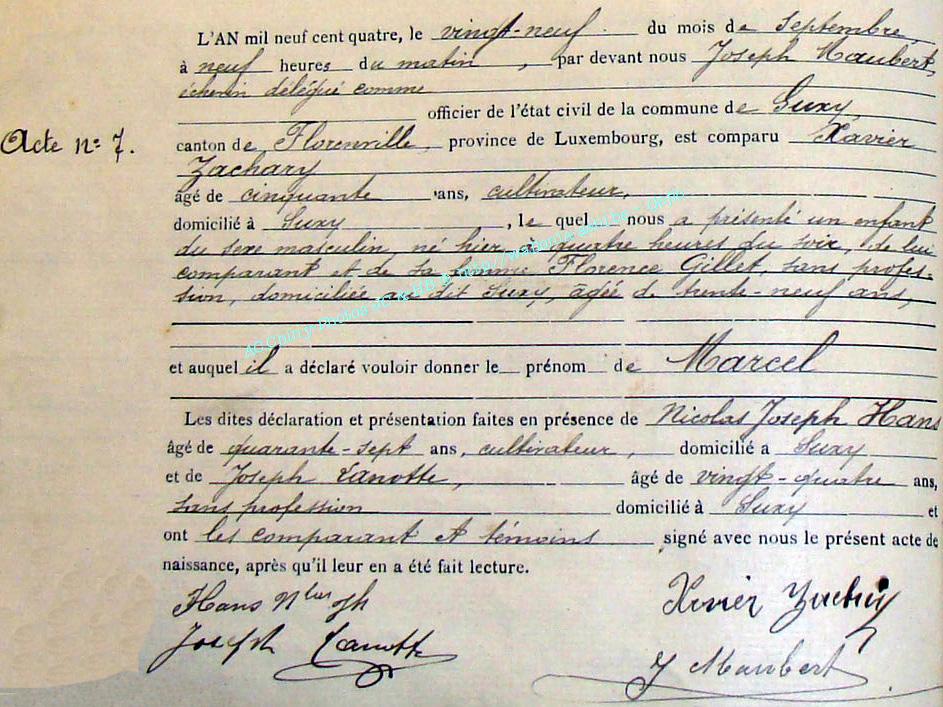 L'AN mil neuf cent quatre, le vingt-neuf du mois de Septembre,
à neuf heures du matin, par devant nous Joseph Maubert,
échevin délégué comme
officier de l'état civil de la commune de Suxy
Acte nº 7.
canton de Florenville, province de Luxembourg, est comparu Xavier
Zachary
âgé de cinquante ans, cultivateur,
domicilié à Suxy, le quel nous a présenté un enfant
du sexe masculin, né hier, à quatre heures du soir, de lui
comparant et de sa femme Florence Gillet, sans profes-
sion, domiciliée au dit Suxy, âgée de trente-neuf ans,
et auquel il a déclaré vouloir donner le prénom de Marcel
Les dites déclaration et présentation faites en présence de Nicolas Joseph Hans
âgé de quarante-sept ans, cultivateur, domicilié à Suxy
et de Joseph Lanotte, âgé de vingt-quatre ans,
sans profession domicilié à Suxy et
ont les comparant et témoins signé avec nous le présent acte de
naissance, après qu'il leur en a été fait lecture.
Hans Nlas Jph
Xavier Zachary
Joseph Lanotte
J Maubert